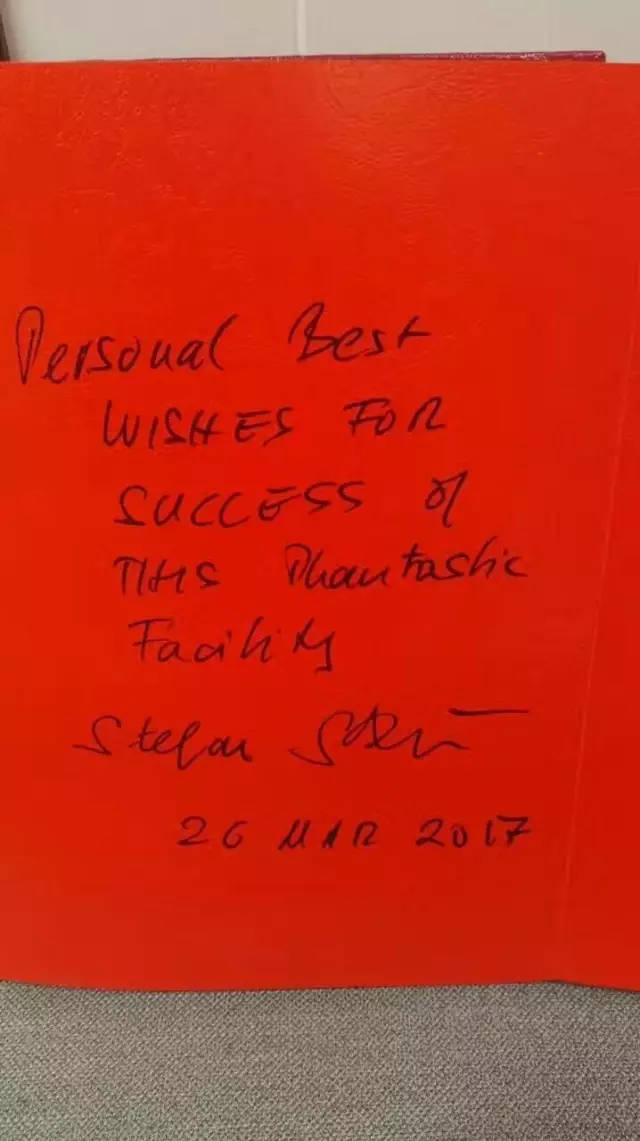 Personal Best
WISHES FOR
SUCCESS of
THIS Phantastic
Facility
Stefan
26 MAR 2017